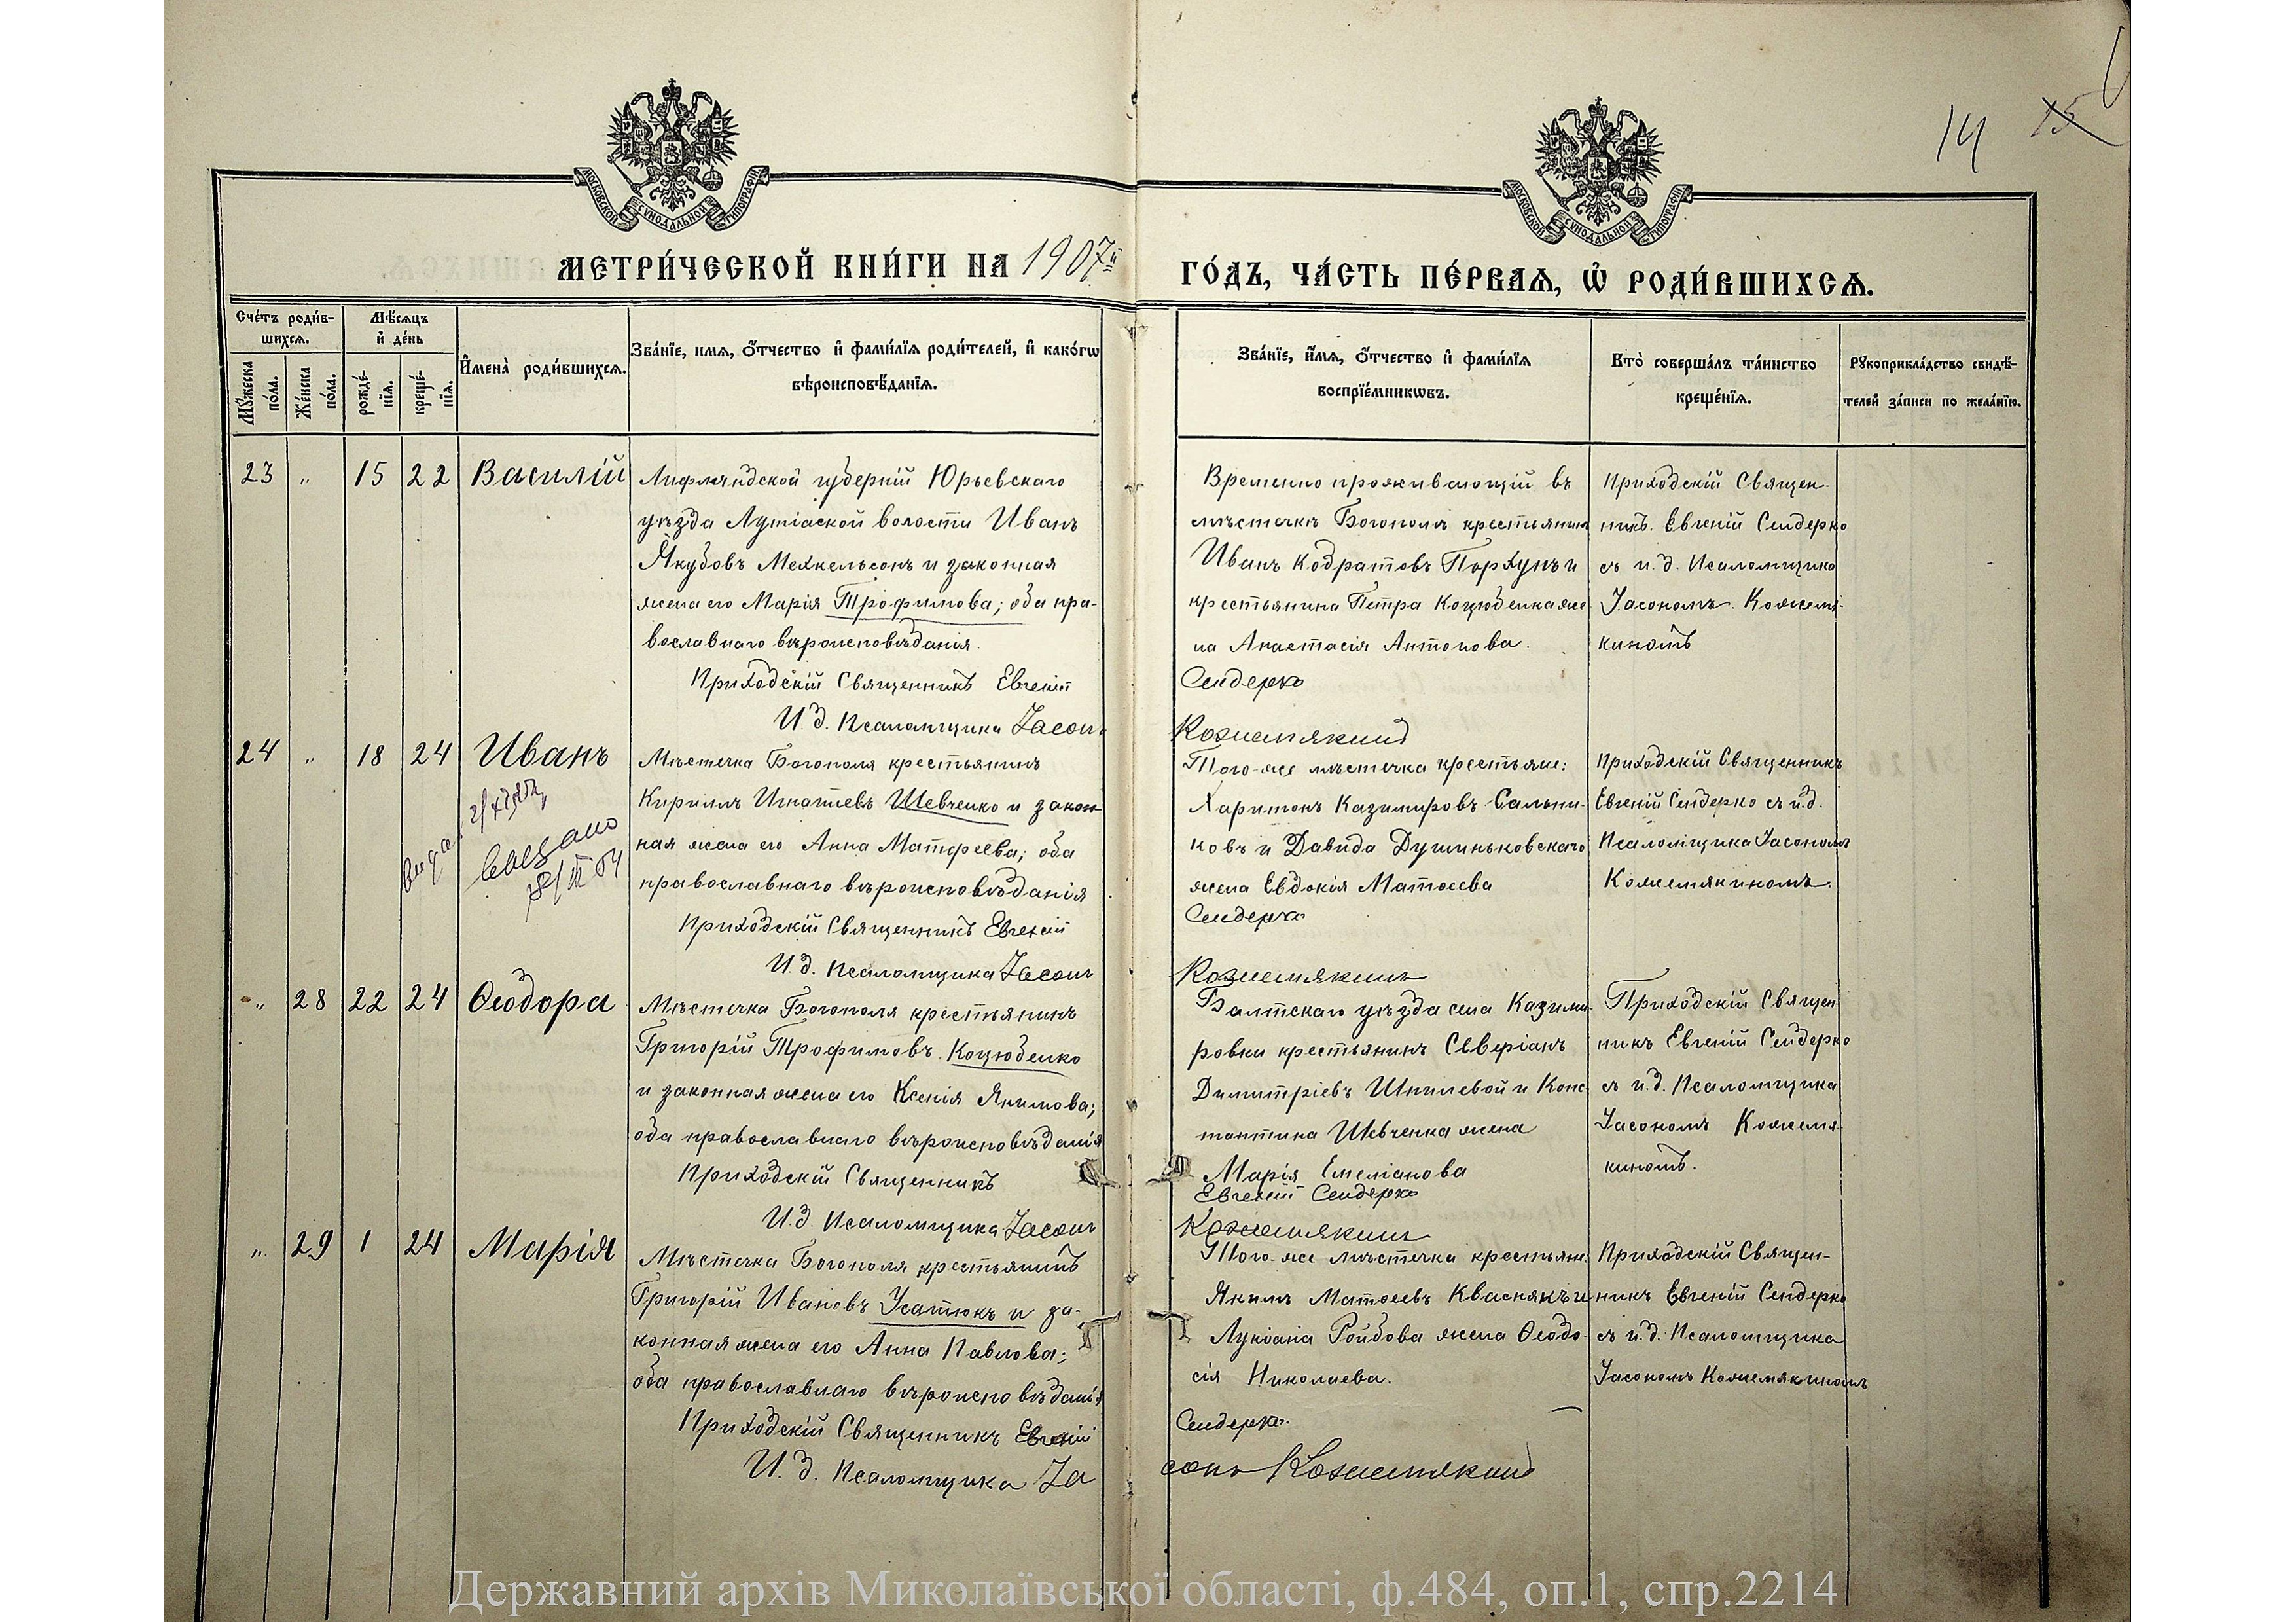 14 15
МОСКОВСКОЙ СѴНОДАЛЬНОЙ ТИПОГРАФІИ
МОСКОВСКОЙ СѴНОДАЛЬНОЙ ТИПОГРАФІИ
МЕТРИ́ЧЕСКОЙ КНИ́ГИ НА 1907й
ГО́ДЪ, ЧА́СТЬ ПЕ́РВАѦ, Ѡ҆ РОДИ́ВШИХСѦ.
Сче́тъ роди́в-
шихсѧ.
Мꙋ́жеска по́ла.
Же́нска по́ла.
Мѣ́сѧцъ
и҆ де́нь
рожде́-нїѧ.
креще́-нїѧ.
И҆мена̀ роди́вшихсѧ.
Зва́нїе, имѧ, ѻ҆́тчество и҆ фами́лїѧ роди́телей, и҆ како́гѡ
вѣроисповѣ́данїѧ.
Зва́нїе, и҆́мѧ, ѻ҆́тчество и҆ фами́лїѧ
воспрїе́мникѡвъ.
Кто̀ соверша́лъ та́инство
креще́нїѧ.
Рꙋкоприкла́дство свидѣ́-
телей за́писи по жела́нїю.
23 " 15 22 Василій
Лифляндской губерній Юрьевскаго
уѣзда Лугіаской волости Иванъ
Якубовъ Мехкельсонъ и законная
жена его Марія Трофимова; оба пра-
вославнаго вѣроисповѣданія.
Приходскій Священникъ Евгеній
И.д. Псаломщика Іасонъ
Временно проживающій въ
мѣстечкѣ Богополѣ крестьянинъ
Иванъ Кодратовъ Порхунъ и
крестьянина Петра Коцюбенка же
на Анастасія Антонова.
Сендерко
Кожемякинъ
Приходскій Священ-
никъ Евгеній Сендерко
съ и.д. Псаломщика
Іасономъ Кожемя-
кинымъ
24 " 18 24 Иванъ
54
Мѣстечка Богополя крестьянинъ
Кириллъ Игнатіевъ Шевченко и закон
ная жена его Анна Матфеева; оба
православнаго вѣроисповѣданія
Приходскій Священникъ Евгеній
И.д. Псаломщика Іасонъ
Того-же мѣстечка крестьяне:
Харитонъ Казимировъ Сальни-
ковъ и Давида Душиньковскаго
жена Евдокія Матѳеева
Сендерко
Кожемякинъ
Приходскій Священникъ
Евгеній Сендерко съ и.д.
Псаломщика Іасономъ
Кожемякиномъ.
" 28 22 24 Ѳеодора
Мѣстечка Богополя крестьянинъ
Григорій Трофимовъ Коцюбенко
и законная жена его Ксенія Якимова;
оба православнаго вѣроисповѣданія
Приходскій Священникъ
И.д. Псаломщика Іасонъ
Балтскаго уѣзда села Казими-
ровки крестьянинъ Северіанъ
Димитріевъ Шпилевой и Конс-
тантина Шевченка жена
Марія Емеліанова
Евгеній Сендерко
Кожемякинъ
Приходскій Священ
никъ Евгеній Сендерко
съ и.д. Псаломщика
Іасономъ Кожемя-
кинымъ.
" 29 1 24 Марія
Мѣстечка Богополя крестьянинъ
Григорій Ивановъ Усатюкъ и за-
конная жена его Анна Павлова;
оба православнаго вѣроисповѣданія
Приходскій Священникъ Евгеній
И.д. Псаломщика Іа
Того-же мѣстечка крестьяне:
Якимъ Матѳеевъ Кваснякъ и
Лукіана Ройбова жена Ѳеодо-
сія Николаева.
Сендерко.
сонъ Кожемякинъ
Приходскій Священ-
никъ Евгеній Сендерко
съ и.д. Псаломщика
Іасономъ Кожемякиномъ
Державний архів Миколаївської області, ф.484, оп.1, спр.2214